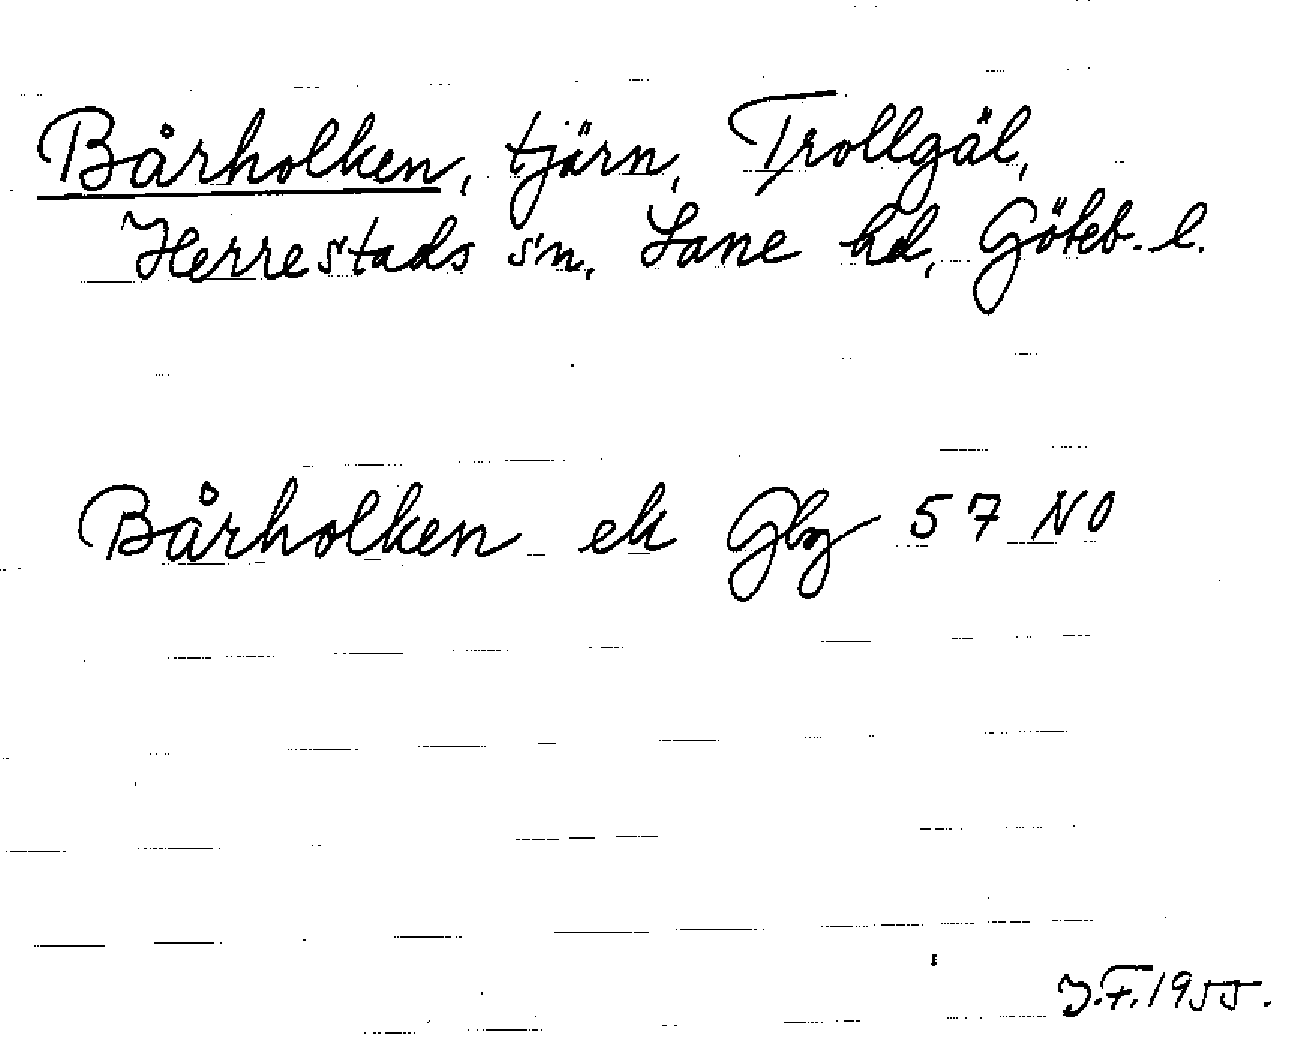 Bårholken, tjärn, Trollgäl,
Herrestads sn, Lane hd, Göteb. l.
Bårholken ek Gbg 57 NO
J.F. 1955.